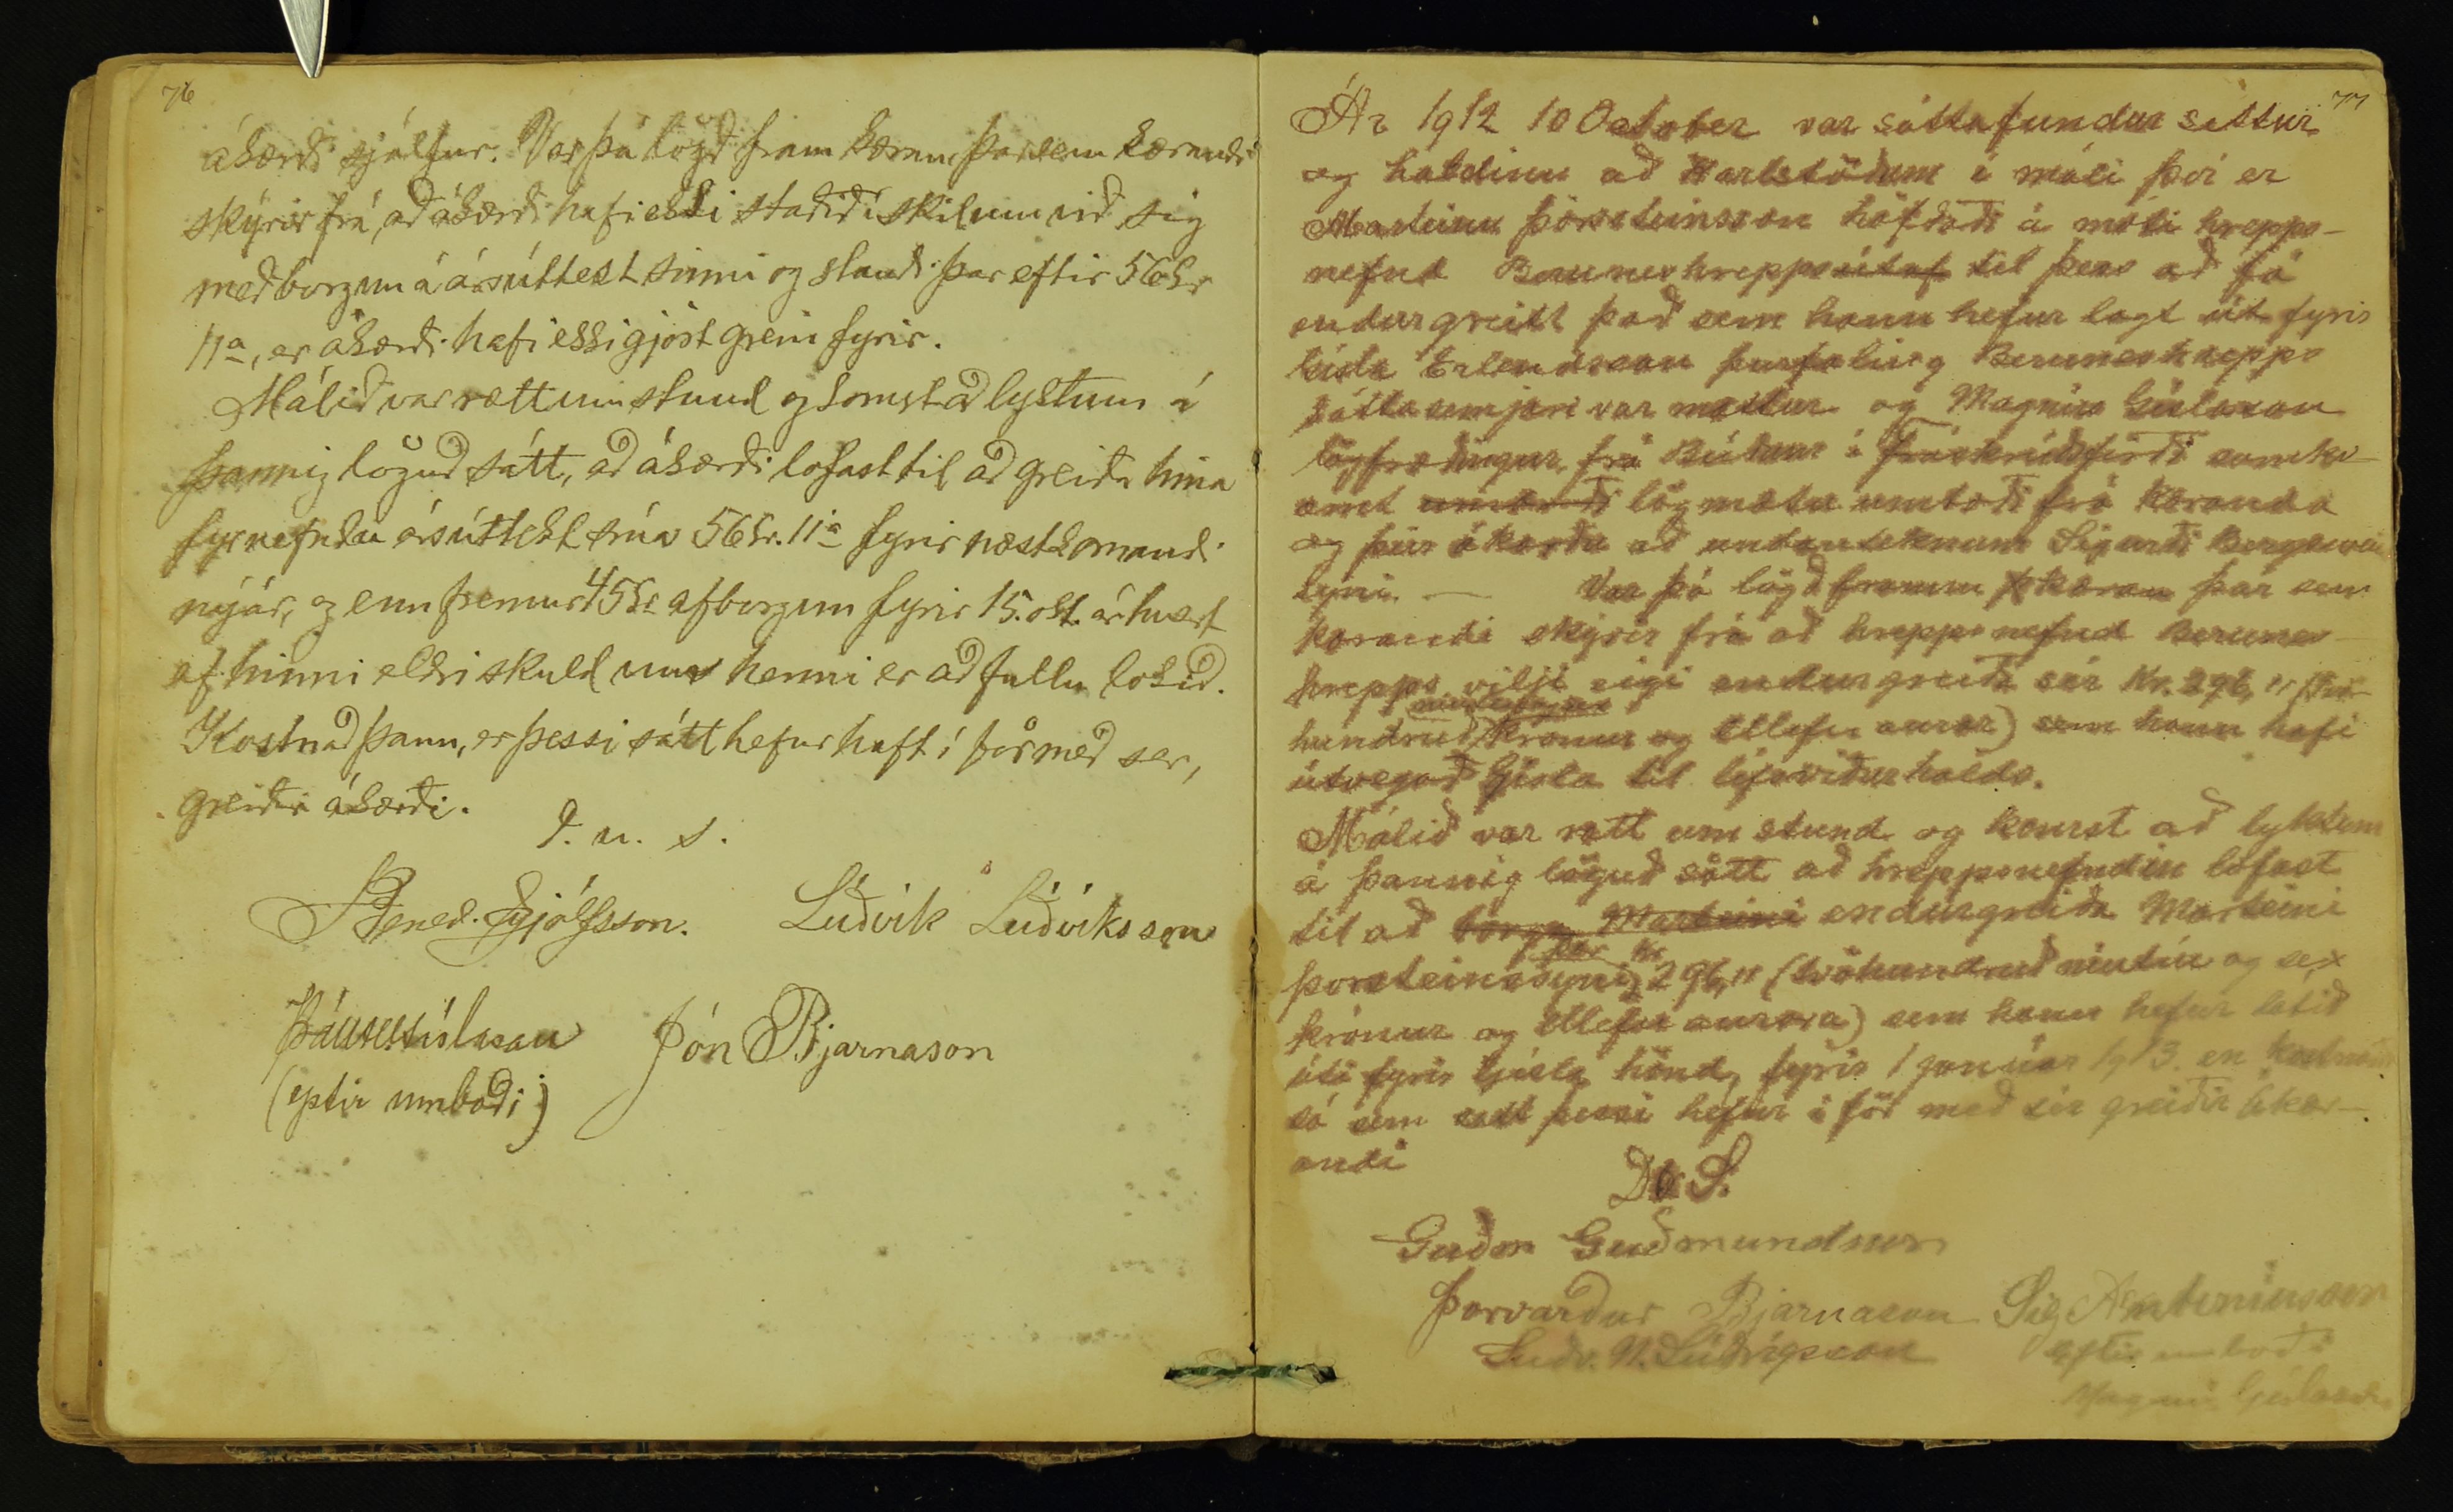 76
ákærði sjálfur. Var þá lögð fram kæran, þar sem kærandi
skýrir frá, að ákærði hafi ekki staðið í skilum við sig
með borgun á ársúttekt sinni og standi þar eftir 56 kr
11 a, er ákærði hafi ekki gjört grein fyrir.
Málið var rætt um stund og komst að lyktum á
þannig löguð sátt, að ákærði lofast til að greiða hina
fyrnefndu ársúttekt sína 56 kr. 11 a fyrir næstkomandi
nýár, og enn fremur 45 kr afborgun fyrir 15. okt. ár hvert
af hinni eldri skuld uns henni er að fullu lokið.
Kostnað þann, er þessi sátt hefur haft í för með sér,
greiðir ákærði.
D. u. s.
Bened. Eyjólfsson. Lúðvík Lúðvíksson
Páll Gíslason Jón Bjarnason
(eptir umboði)
77
Ár 1912 10 October var sáttafundur settur
og haldinn að Karlstöðum í máli því er
Marteinn Þorsteinsson höfðaði á móti hrepps-
nefnd Beruneshrepps útaf til þess að fá
endurgreitt það sem hann hefur lagt út fyrir
Gísla Erlendsson þurfaling Beruneshrepps
Sáttasemjari var mættur og Magnús Gíslason
lögfræðingur frá Búðum í Fáskrúðsfirði samkv
æmt umærði lögmætu umboði frá kæranda
og þeir ákærðu að undanteknum Sigurði Bergsveins
syni. — Var þá lögð framm kæran þar sem
kærandi skýrir frá að hreppsnefnd Berunes-
hrepps vilji eigi endurgreiða sér Kr. 296,11 (Tvö-
hundruð níutíuogsex krónur og Ellefu aurar) sem hann hafi
útvegað Gísla til lífsviðurhalds.
Málið var rætt um stund og komst að lyktum
á þannig löguð sátt að hreppsnefndin lofast
til að borga Marteini endurgreiða Marteini
Þorsteinssyni Kr 296,11 (tvöhundruð níutíu og sex
krónur og Ellefu aurara) sem hann hefur látið
úti fyrir Gísla hönd, fyrir 1 janúar 1913. en kostnað
sá sem sátt þessi hefur í för með sér greiðir ákær-
andi
D. u. S.
Guðm Guðmundsson
Þorvarður Bjarnason Sig Antoníusson
Lúðv. N. Lúðvígsson eftir umboði
Magnús Gíslason